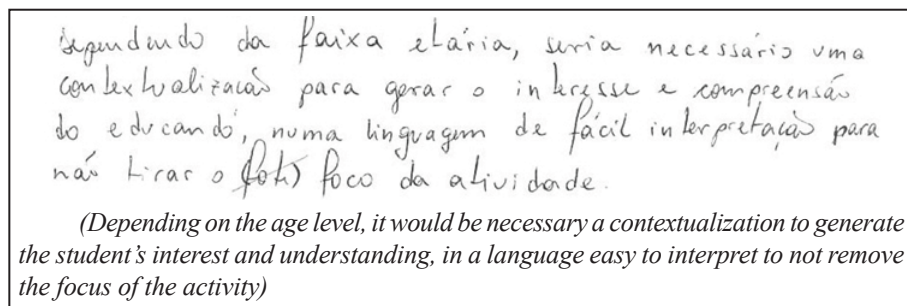 dependendo da faixa etária, seria necessário uma
contextualização para gerar o interesse e compreensão
do educando, numa linguagem de fácil interpretação para
não tirar o (foti) foco da atividade.
(Depending on the age level, it would be necessary a contextualization to generate
the student's interest and understanding, in a language easy to interpret to not remove
the focus of the activity)